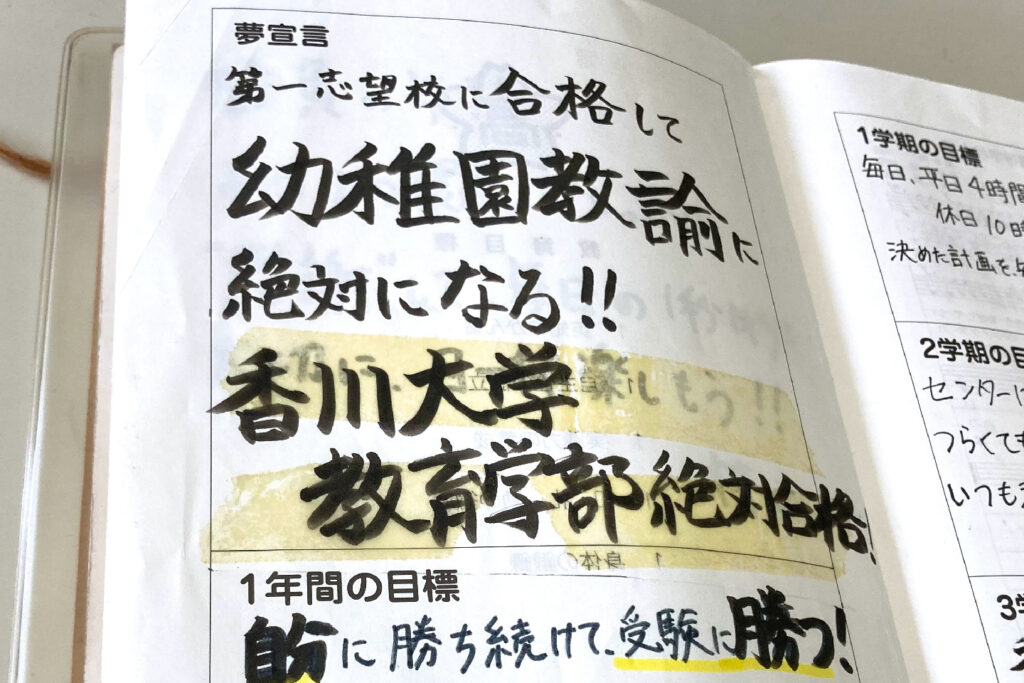 夢宣言
第一志望校に合格して
幼稚園教諭に
絶対になる!!
香川大学
教育学部絶対合格!
1年間の目標
自分に勝ち続けて、受験に勝つ!
1学期の目標
毎日、平日4時間
休日10時
決めた計画を
2学期の目
センターに
つらくても
いつも
3学